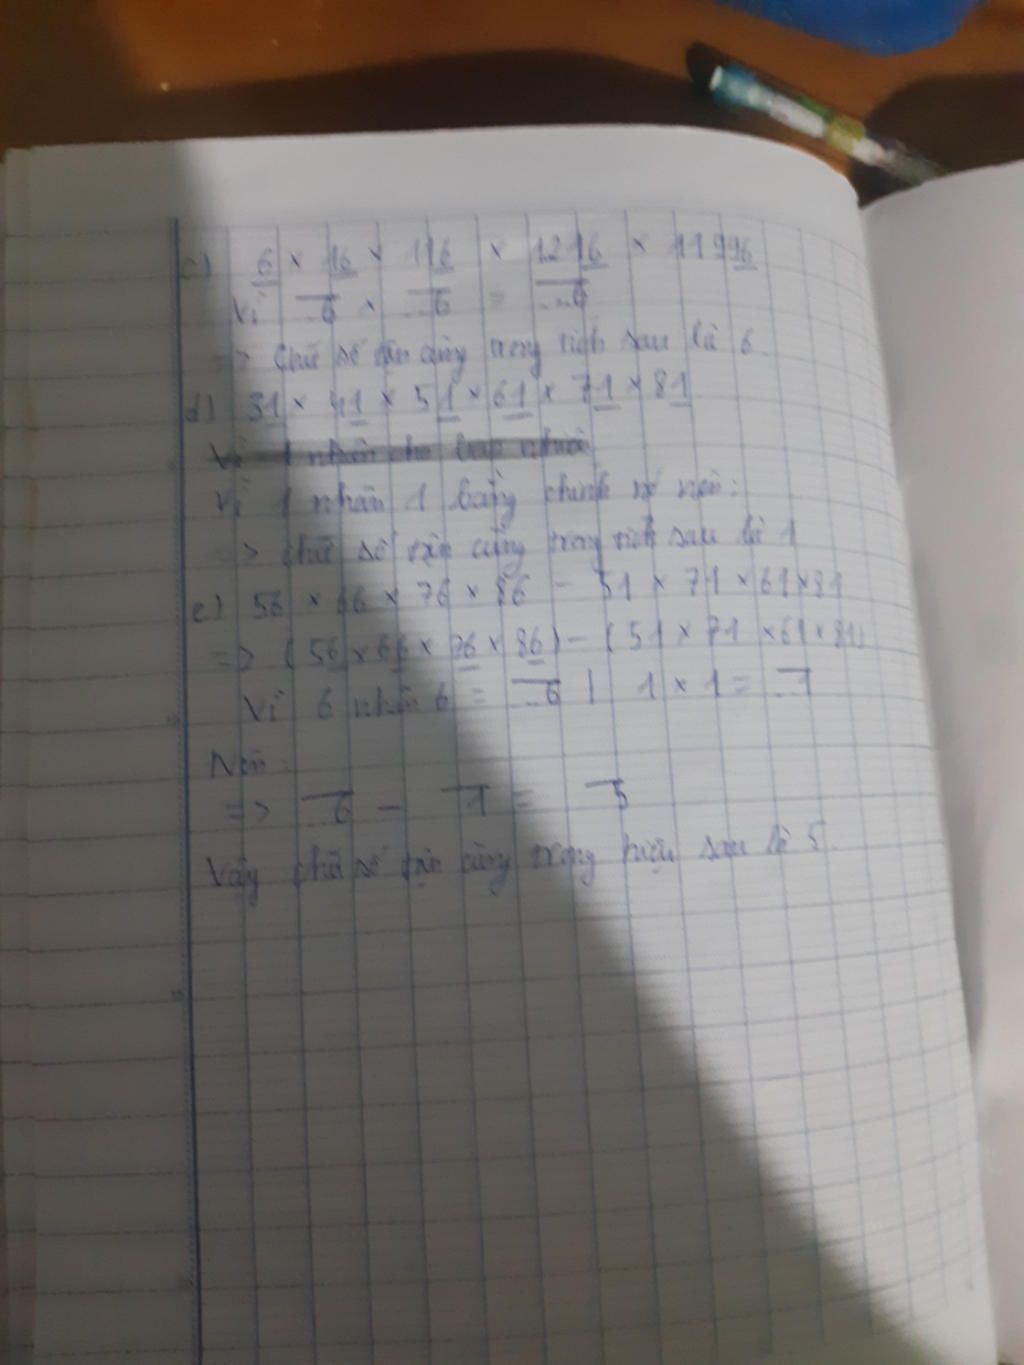 c) 6 × 16 × 116 × 1216 × 11996
Vì ...6 × ...6 = ...6
=> Chữ số tận cùng trong tích sau là 6.
d) 31 × 41 × 51 × 61 × 71 × 81
Vì 1 nhân cho bao nhiêu
Vì 1 nhân 1 bằng chính nó nên:
=> chữ số tận cùng trong tích sau là 1
e) 56 × 66 × 76 × 86 - 51 × 71 × 61 × 81
=> (56 × 66 × 76 × 86) - (51 × 71 × 61 × 81)
Vì 6 nhân 6 = ...6 | 1 × 1 = ...1
Nên:
=> ...6 - ...1 = ...5
Vậy chữ số tận cùng trong hiệu sau là 5.